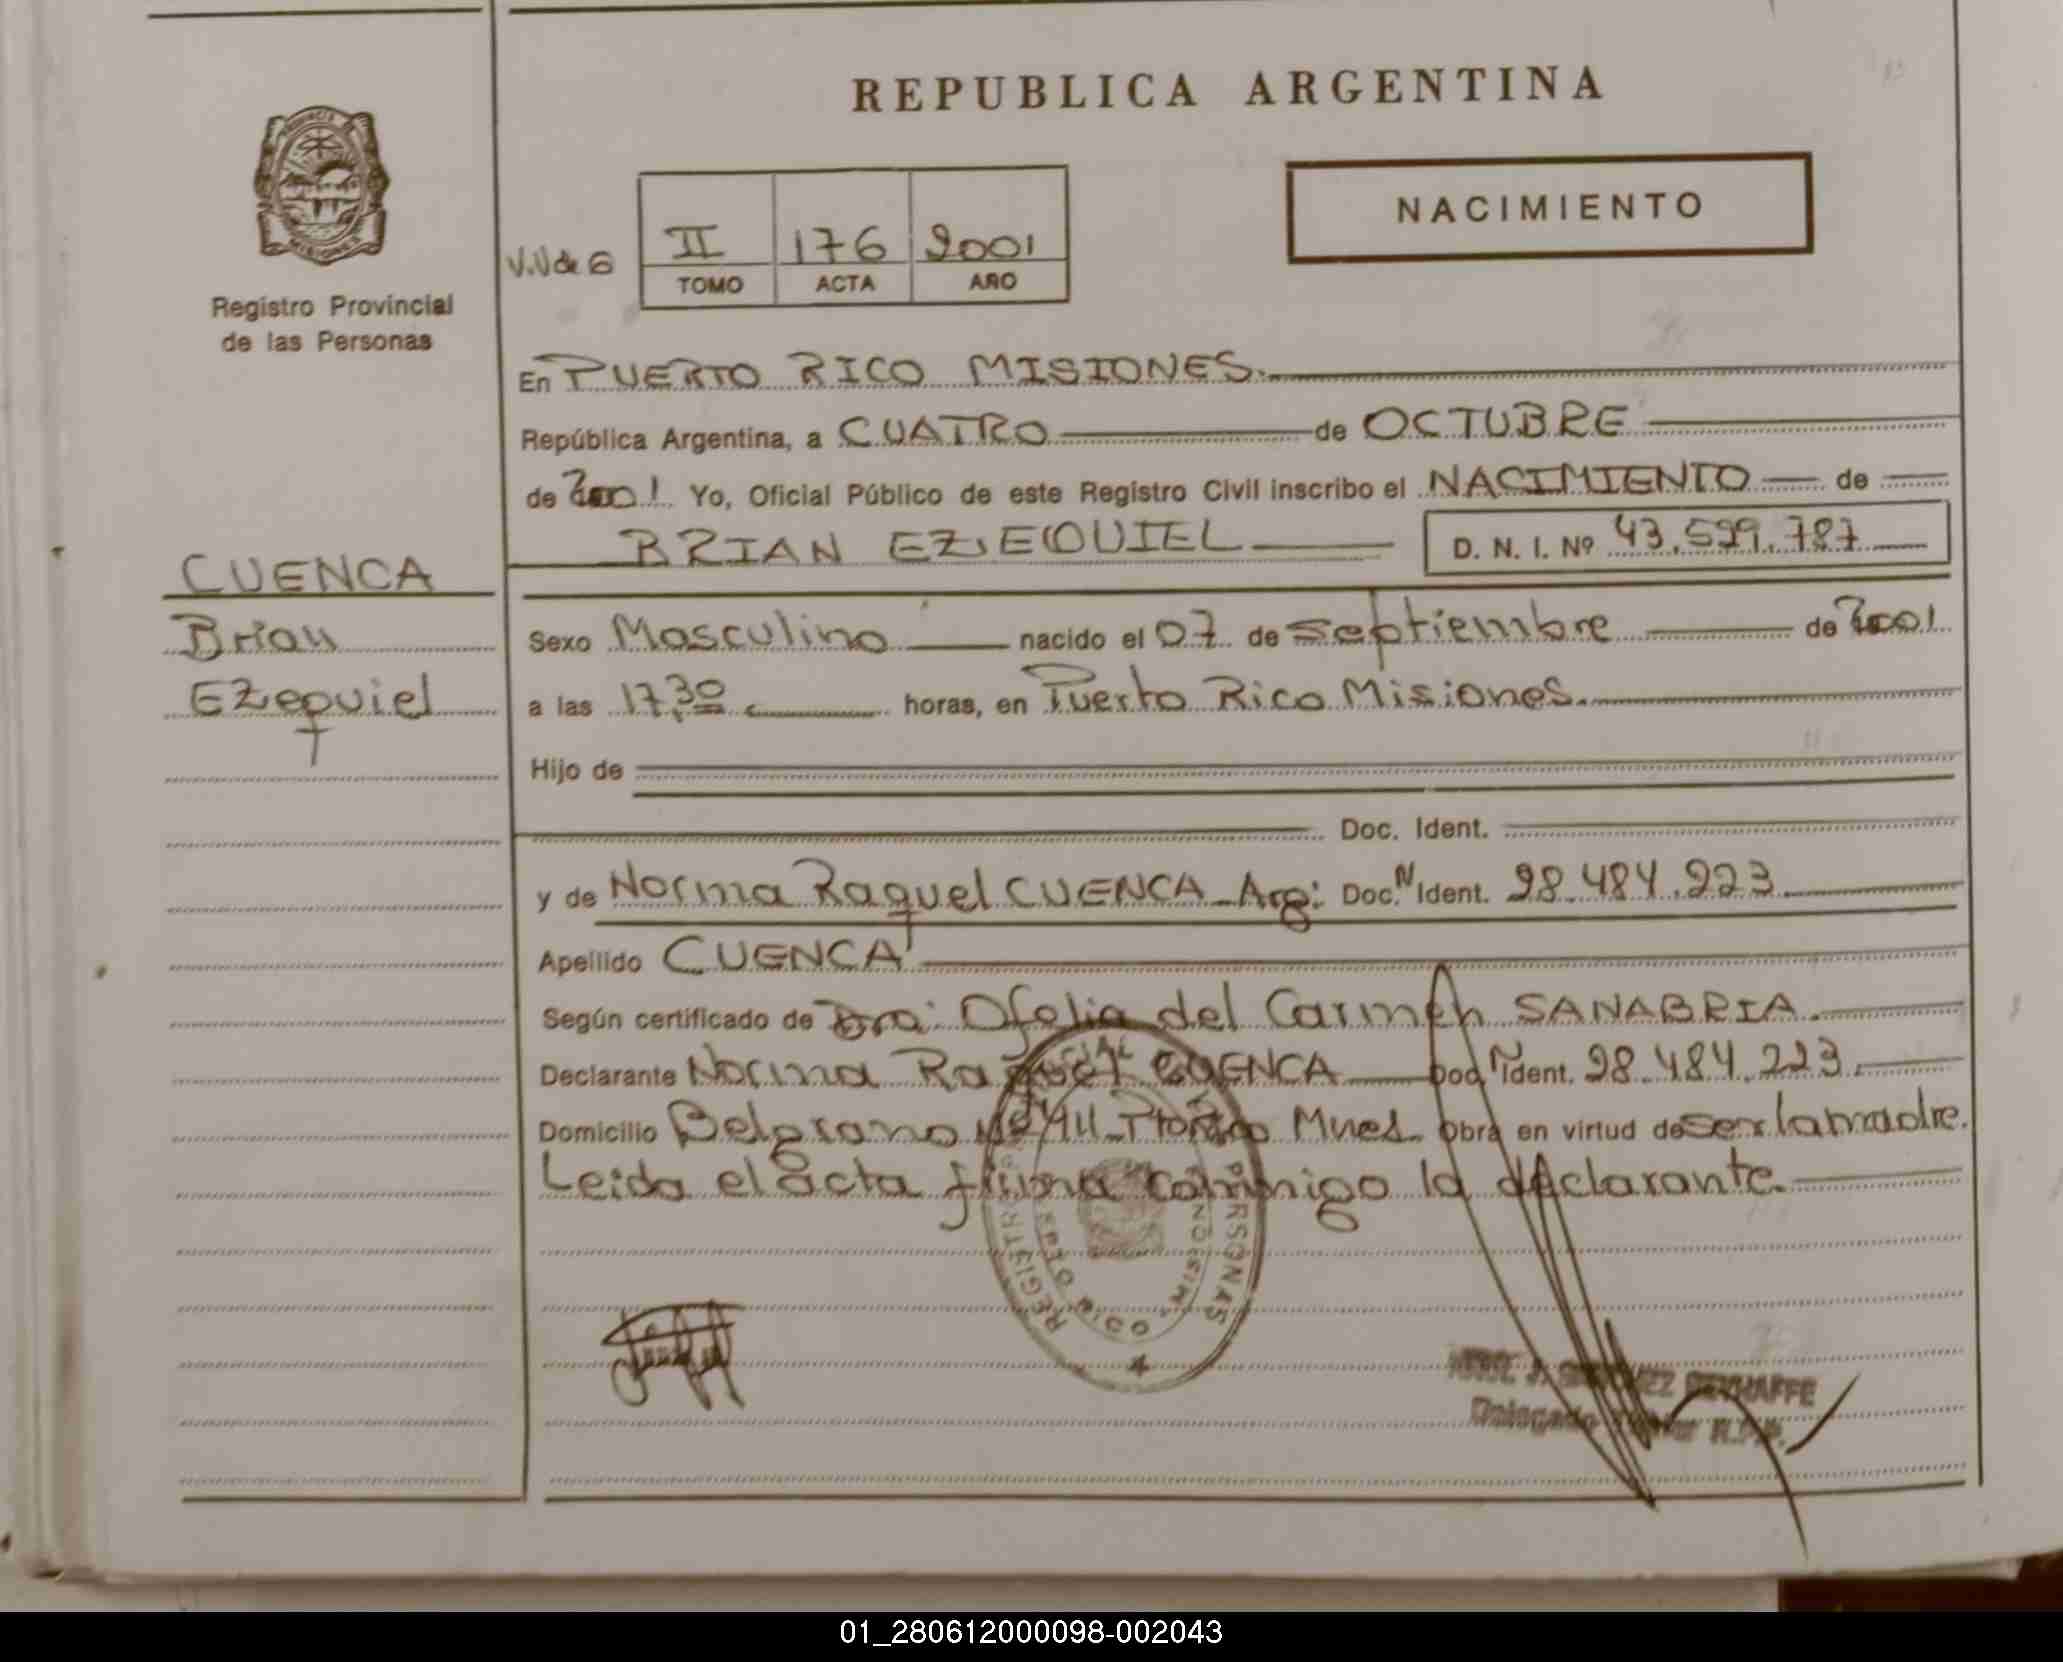 REPUBLICA ARGENTINA
NACIMIENTO
V.V de G
II 176 2001
TOMO ACTA AÑO
PROVINCIA
MISIONES
Registro Provincial
de las Personas
CUENCA
Brian
Ezequiel
En PUERTO RICO MISIONES.
República Argentina, a CUATRO de OCTUBRE
de 2001 Yo, Oficial Público de este Registro Civil inscribo el NACIMIENTO de
BRIAN EZEQUIEL D. N. I. Nº 43.599.787
Sexo Masculino nacido el 07 de septiembre de 2001
a las 17,30 horas, en Puerto Rico Misiones.
Hijo de
Doc. Ident.
y de Norma Raquel CUENCA - Arg: Doc. N Ident. 28.484.223
Apellido CUENCA
Según certificado de Dra: Ofelia del Carmen SANABRIA.
Declarante Norma Raquel CUENCA Doc. N Ident. 28.484.223.
Domicilio Belgrano Pto Rico Mnes. obra en virtud de ser la madre.
Leida el acta firma conmigo la declarante.
REGISTRO PERSONAS
MISIONES
Delegado R.P.P.
01_280612000098-002043